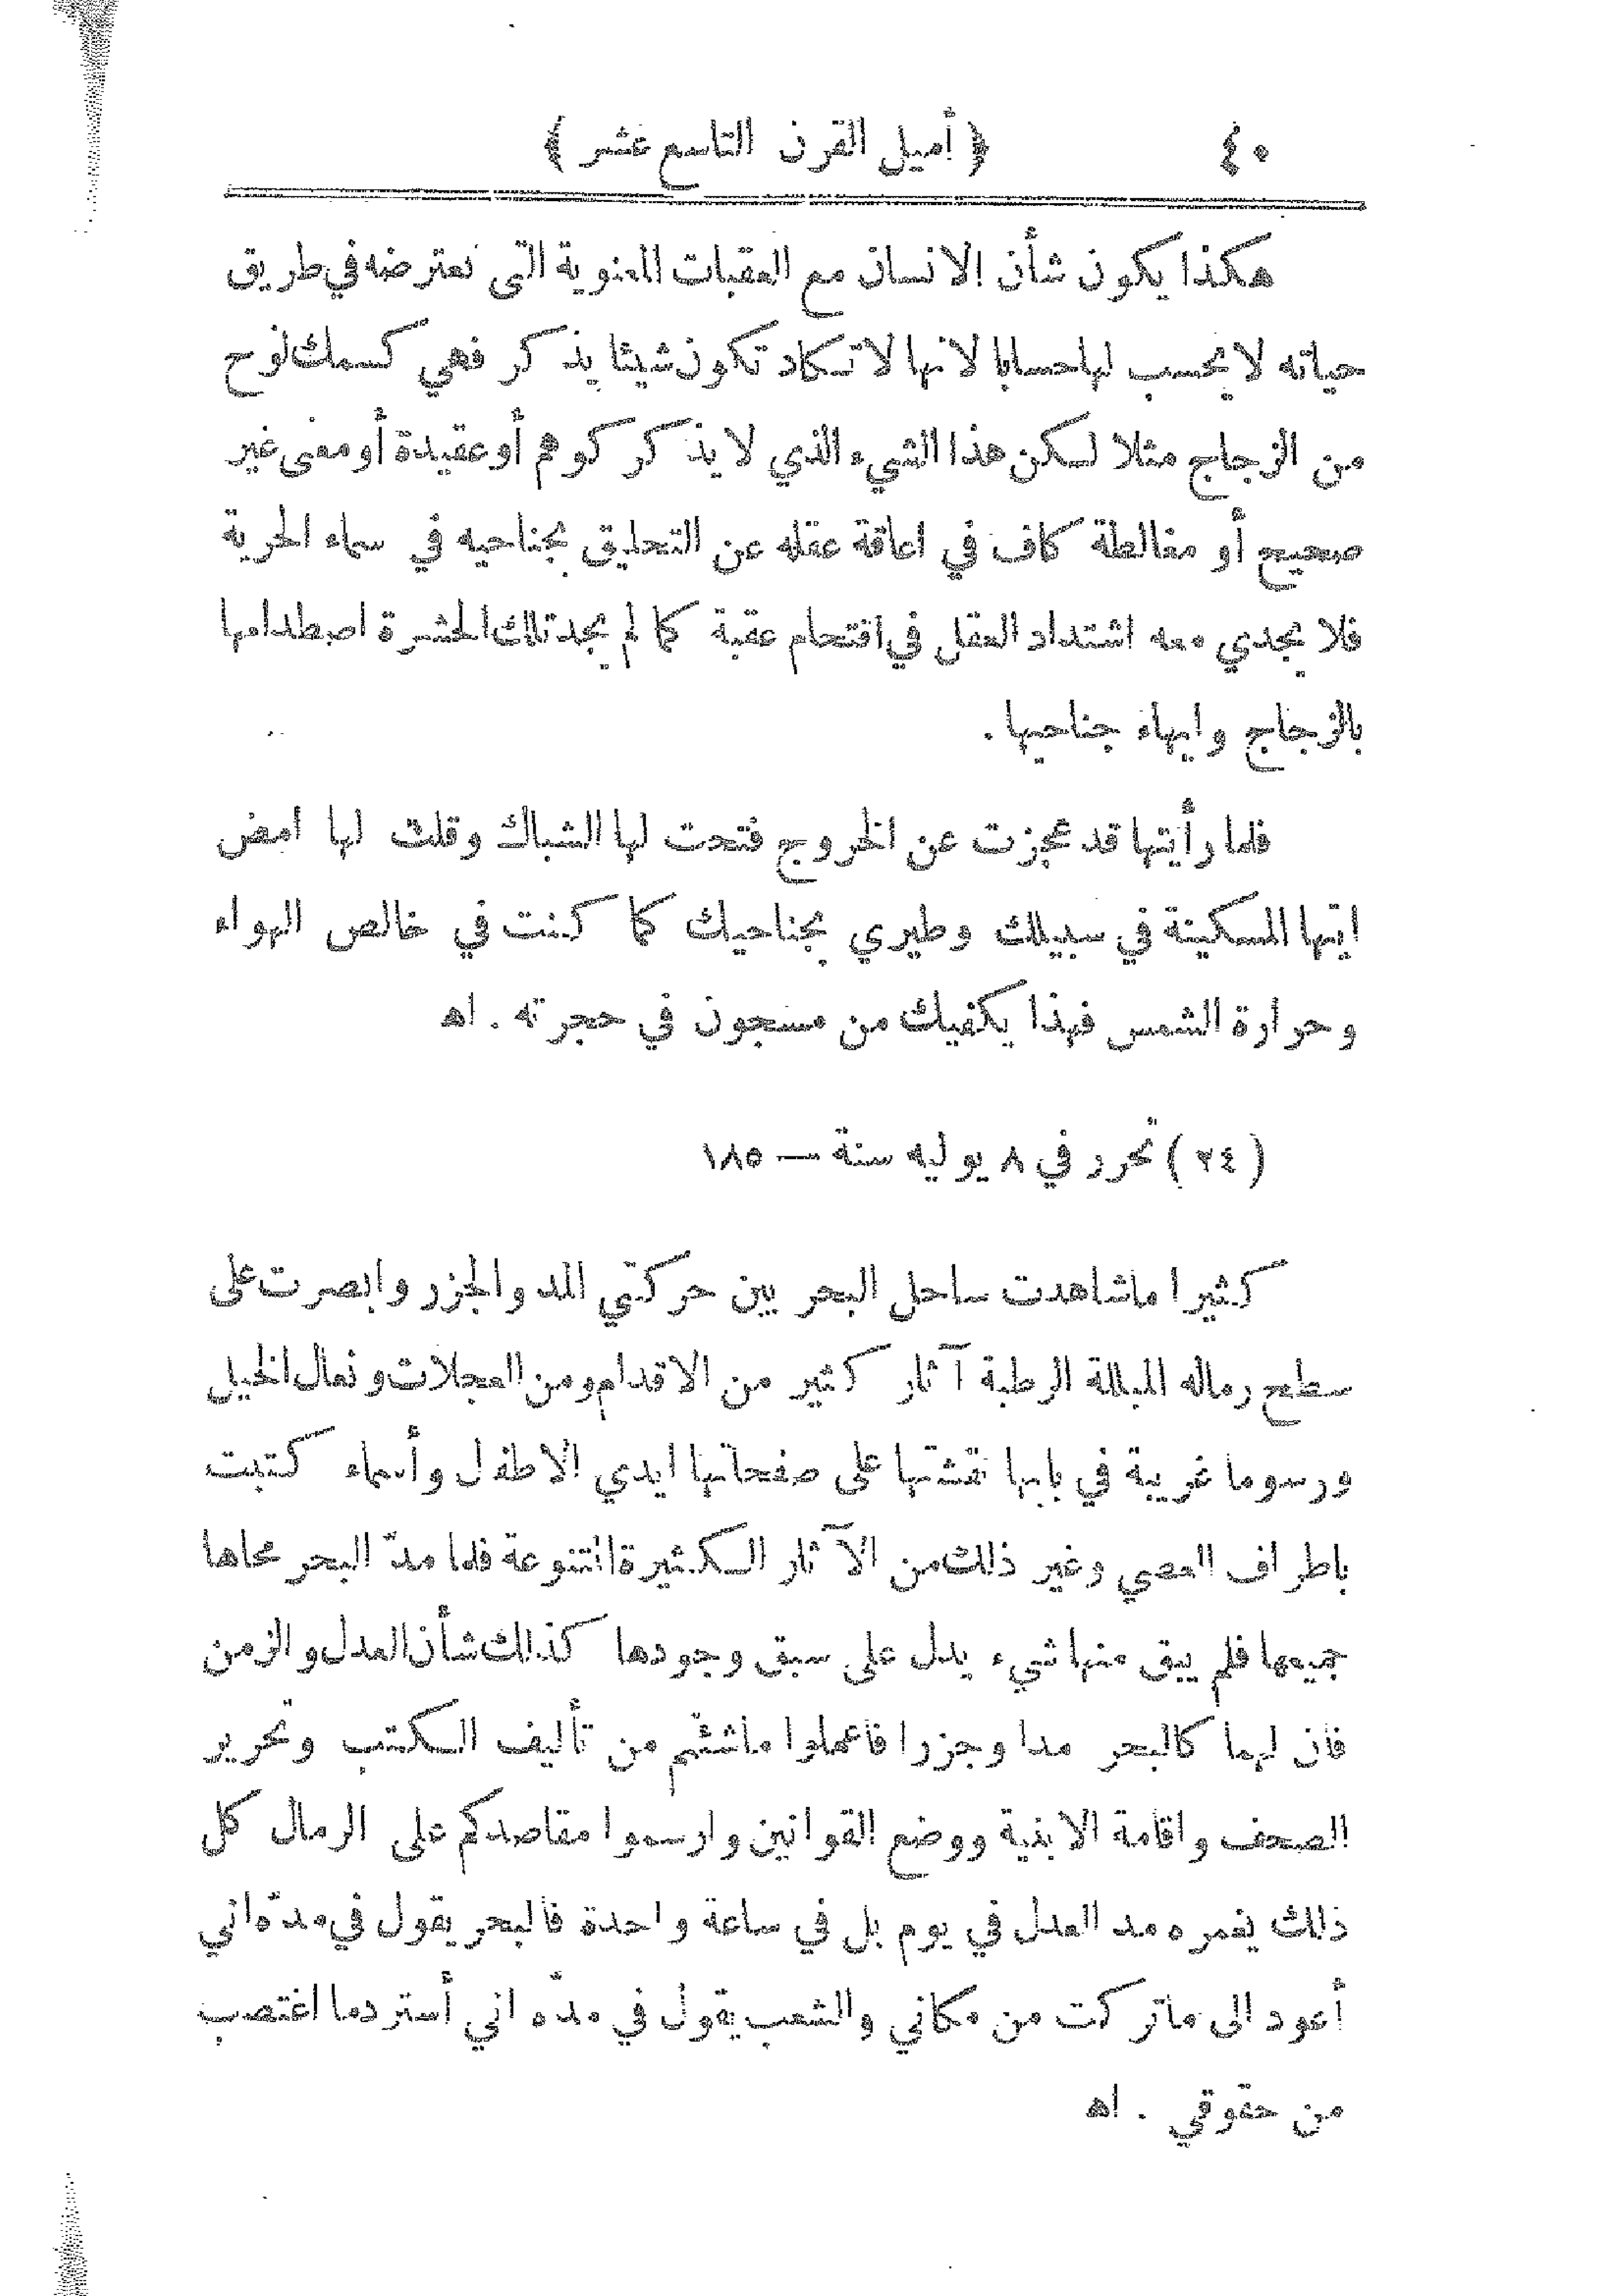 ٤٠ ﴿ أميل القرن التاسع عشر ﴾
هكذا يكون شأن الانسان مع العقبات المعنوية التى تعترضه في طريق
حياته لا يحسب لها حسابا لانها لا تكاد تكون شيئا يذكر فهي كسمك لوح
من الزجاج مثلا لكن هذا الشيء الذي لا يذكر كوهم أو عقيدة أو معنى غير
صحيح أو مغالطة كاف في اعاقة عقله عن التحليق بجناحيه في سماء الحرية
فلا يجدي معه اشتداد العقل في اقتحام عقبة كما لم يجد تلك الحشرة اصطدامها
بالزجاج وايهاء جناحيها .
فلما رأيتها قد عجزت عن الخروج فتحت لها الشباك وقلت لها امض
ايتها المسكينة في سبيلك وطيري بجناحيك كما كنت في خالص الهواء
وحرارة الشمس فهذا يكفيك من مسجون في حجرته . اه
( ٢٤ ) تحرر في ٨ يوليه سنة — ١٨٥
كثيرا ما شاهدت ساحل البحر بين حركتي المد والجزر وابصرت على
سطح رماله المبللة الرطبة آثار كثير من الاقدام ومن العجلات ونعال الخيل
ورسوما غريبة في بابها نقشتها على صفحاتها ايدي الاطفال وأسماء كتبت
باطراف العصي وغير ذلك من الآثار الكثيرة المتنوعة فلما مدّ البحر محاها
جميعها فلم يبق منها شيء يدل على سبق وجودها كذلك شأن العدل والزمن
فان لهما كالبحر مدا وجزرا فاعملوا ماشئتم من تأليف الكتب وتحرير
الصحف واقامة الابنية ووضع القوانين وارسموا مقاصدكم على الرمال كل
ذلك يغمره مد العدل في يوم بل في ساعة واحدة فالبحر يقول في مدّه اني
أعود الى ما تركت من مكاني والشعب يقول في مدّه اني أسترد ما اغتصب
من حقوقي . اه